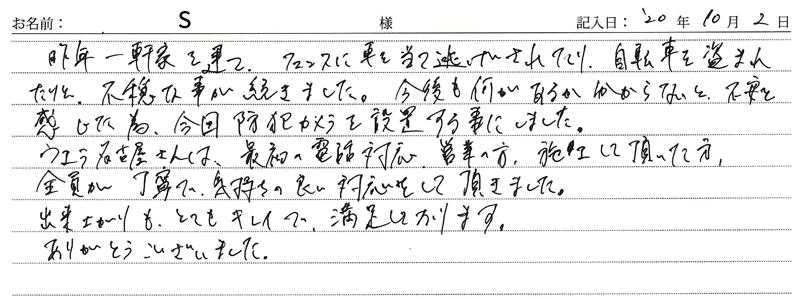 お名前： S 様 記入日： '20 年 10 月 2 日
昨年一軒家を建て、フェンスに車を当て逃げされたり、自転車を盗まれ
たりと、不穏な事が続きました。今後も何があるか分からないと、不安を
感じた為、今回防犯カメラを設置する事にしました。
ウエラ名古屋さんは、最初の電話対応、営業の方、施工して頂いた方、
全員が丁寧で、気持ちの良い対応をして頂きました。
出来上がりも、とてもキレイで、満足しております。
ありがとうございました。